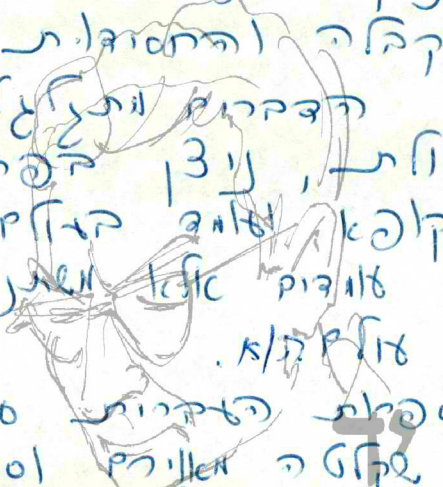 קבלה והחסידות
הדברים מתגלג
ולת, ניצן בפר
קופא ועומד בעולם
עומדים אלא משתנ
עולם הוא.
ספרות העברית
שקלטה מאוירם וס